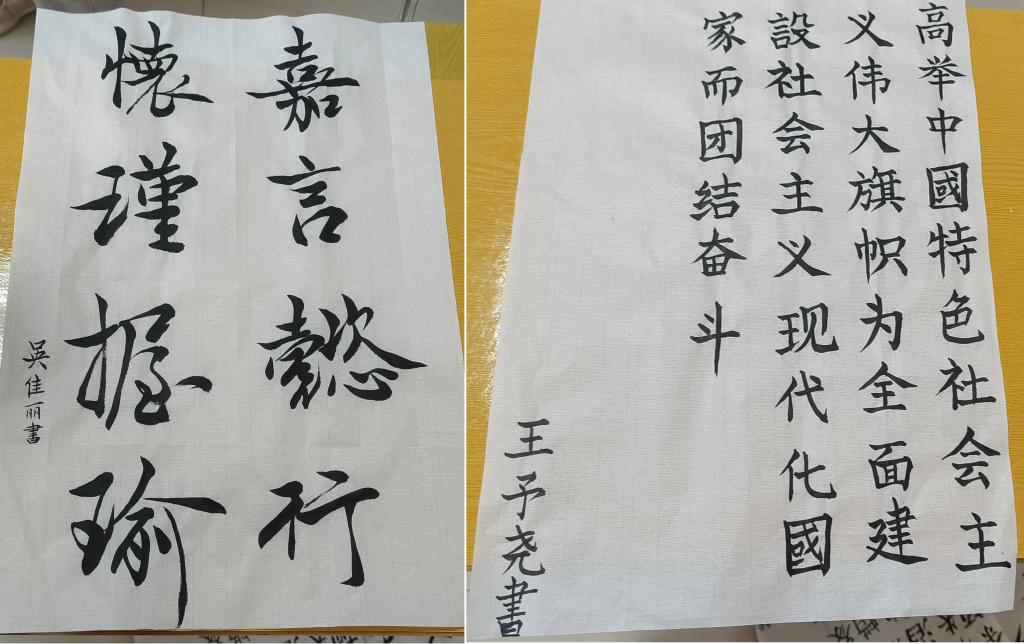 嘉言懿行
懷瑾握瑜
吴佳丽書
高举中國特色社会主
义伟大旗帜为全面建
設社会主义现代化國
家而团结奋斗
王予尧書